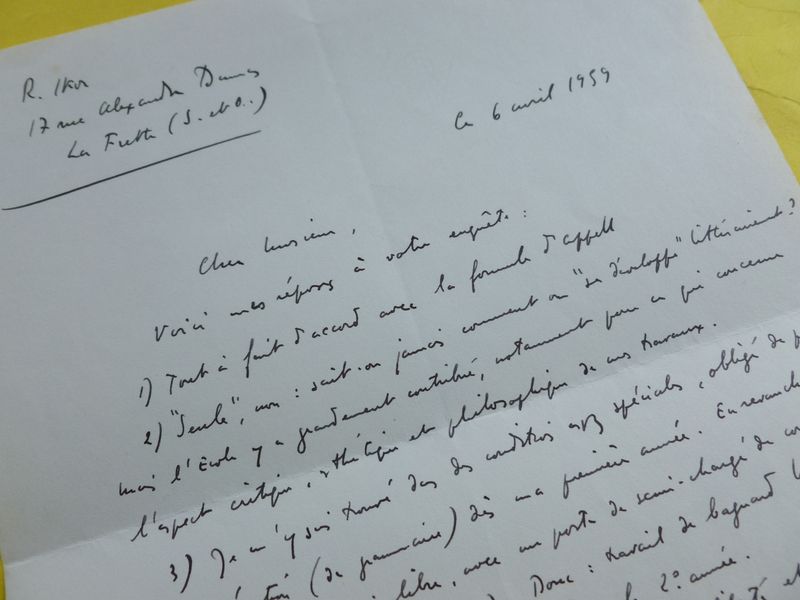 R. Ikor
17 rue Alexandre Dumas
La Frette (S.-et-O.)
le 6 avril 1959
Cher Monsieur,
Voici mes réponses à votre enquête :
1) Tout à fait d'accord avec la formule d'appell
2) "Seule", non : sait-on jamais comment on "se développe" littérairement ?
mais l'École y a grandement contribué, notamment pour ce qui concerne
l'aspect critique, esthétique et philosophique de mes travaux.
3) Je m'y suis trouvé dans des conditions assez spéciales, obligé de
(de grammaire) dès ma première année. En revanche
libre, avec un poste de semi-chargé de
Donc : travail de bagnard
2° année.
et